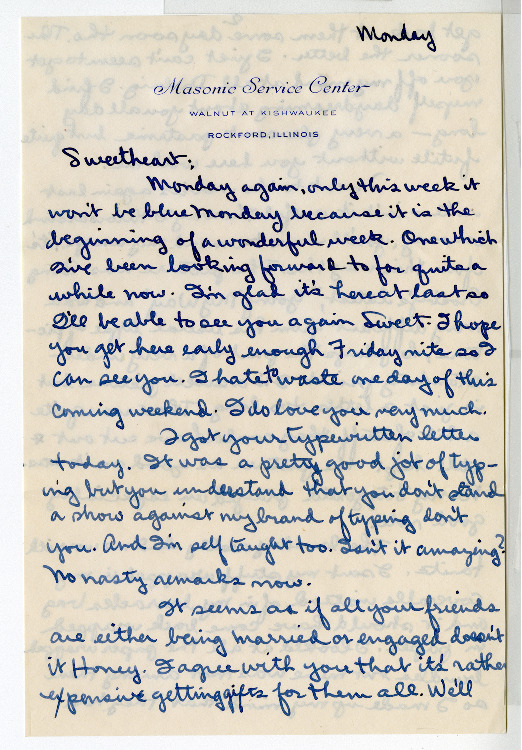 Monday
Masonic Service Center
WALNUT AT KISHWAUKEE
ROCKFORD, ILLINOIS
Sweetheart;
Monday again, only this week it
won't be blue Monday because it is the
beginning of a wonderful week. One which
I've been looking forward to for quite a
while now. I'm glad it's here at last so
I'll be able to see you again Sweet. I hope
you get here early enough Friday nite so I
can see you. I hate to waste one day of this
coming weekend. I do love you very much.
I got your typewritten letter
today. It was a pretty good jot of typ-
ing but you understand that you don't stand
a show against my brand of typing don't
you. And I'm self taught too. Isn't it amazing?
No nasty remarks now.
It seems as if all your friends
are either being married or engaged doesn't
it Honey. I agree with you that it's rather
expensive getting gifts for them all. We'll